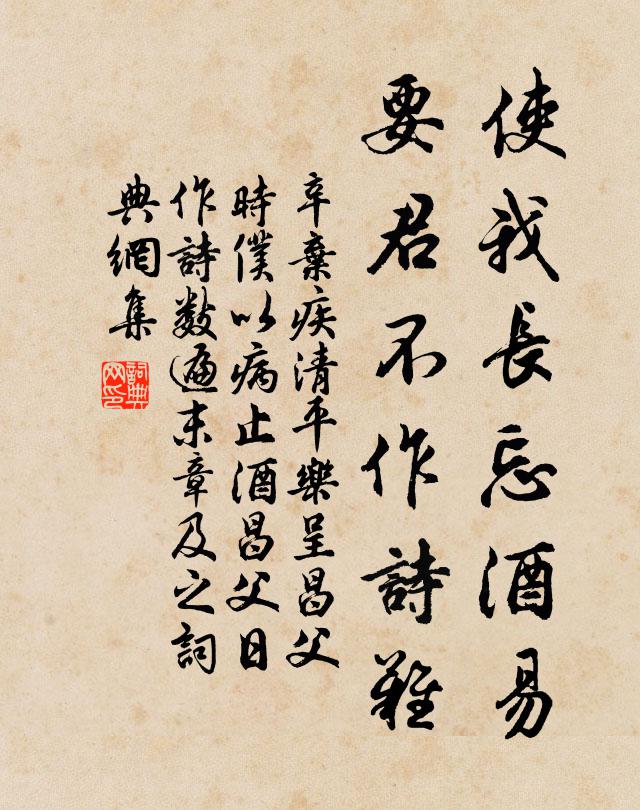 使我長忘酒易
要君不作詩難
辛棄疾清平樂呈昌父
時僕以病止酒昌父日
作詩數遍末章及之詞
典網集
詞典
网印